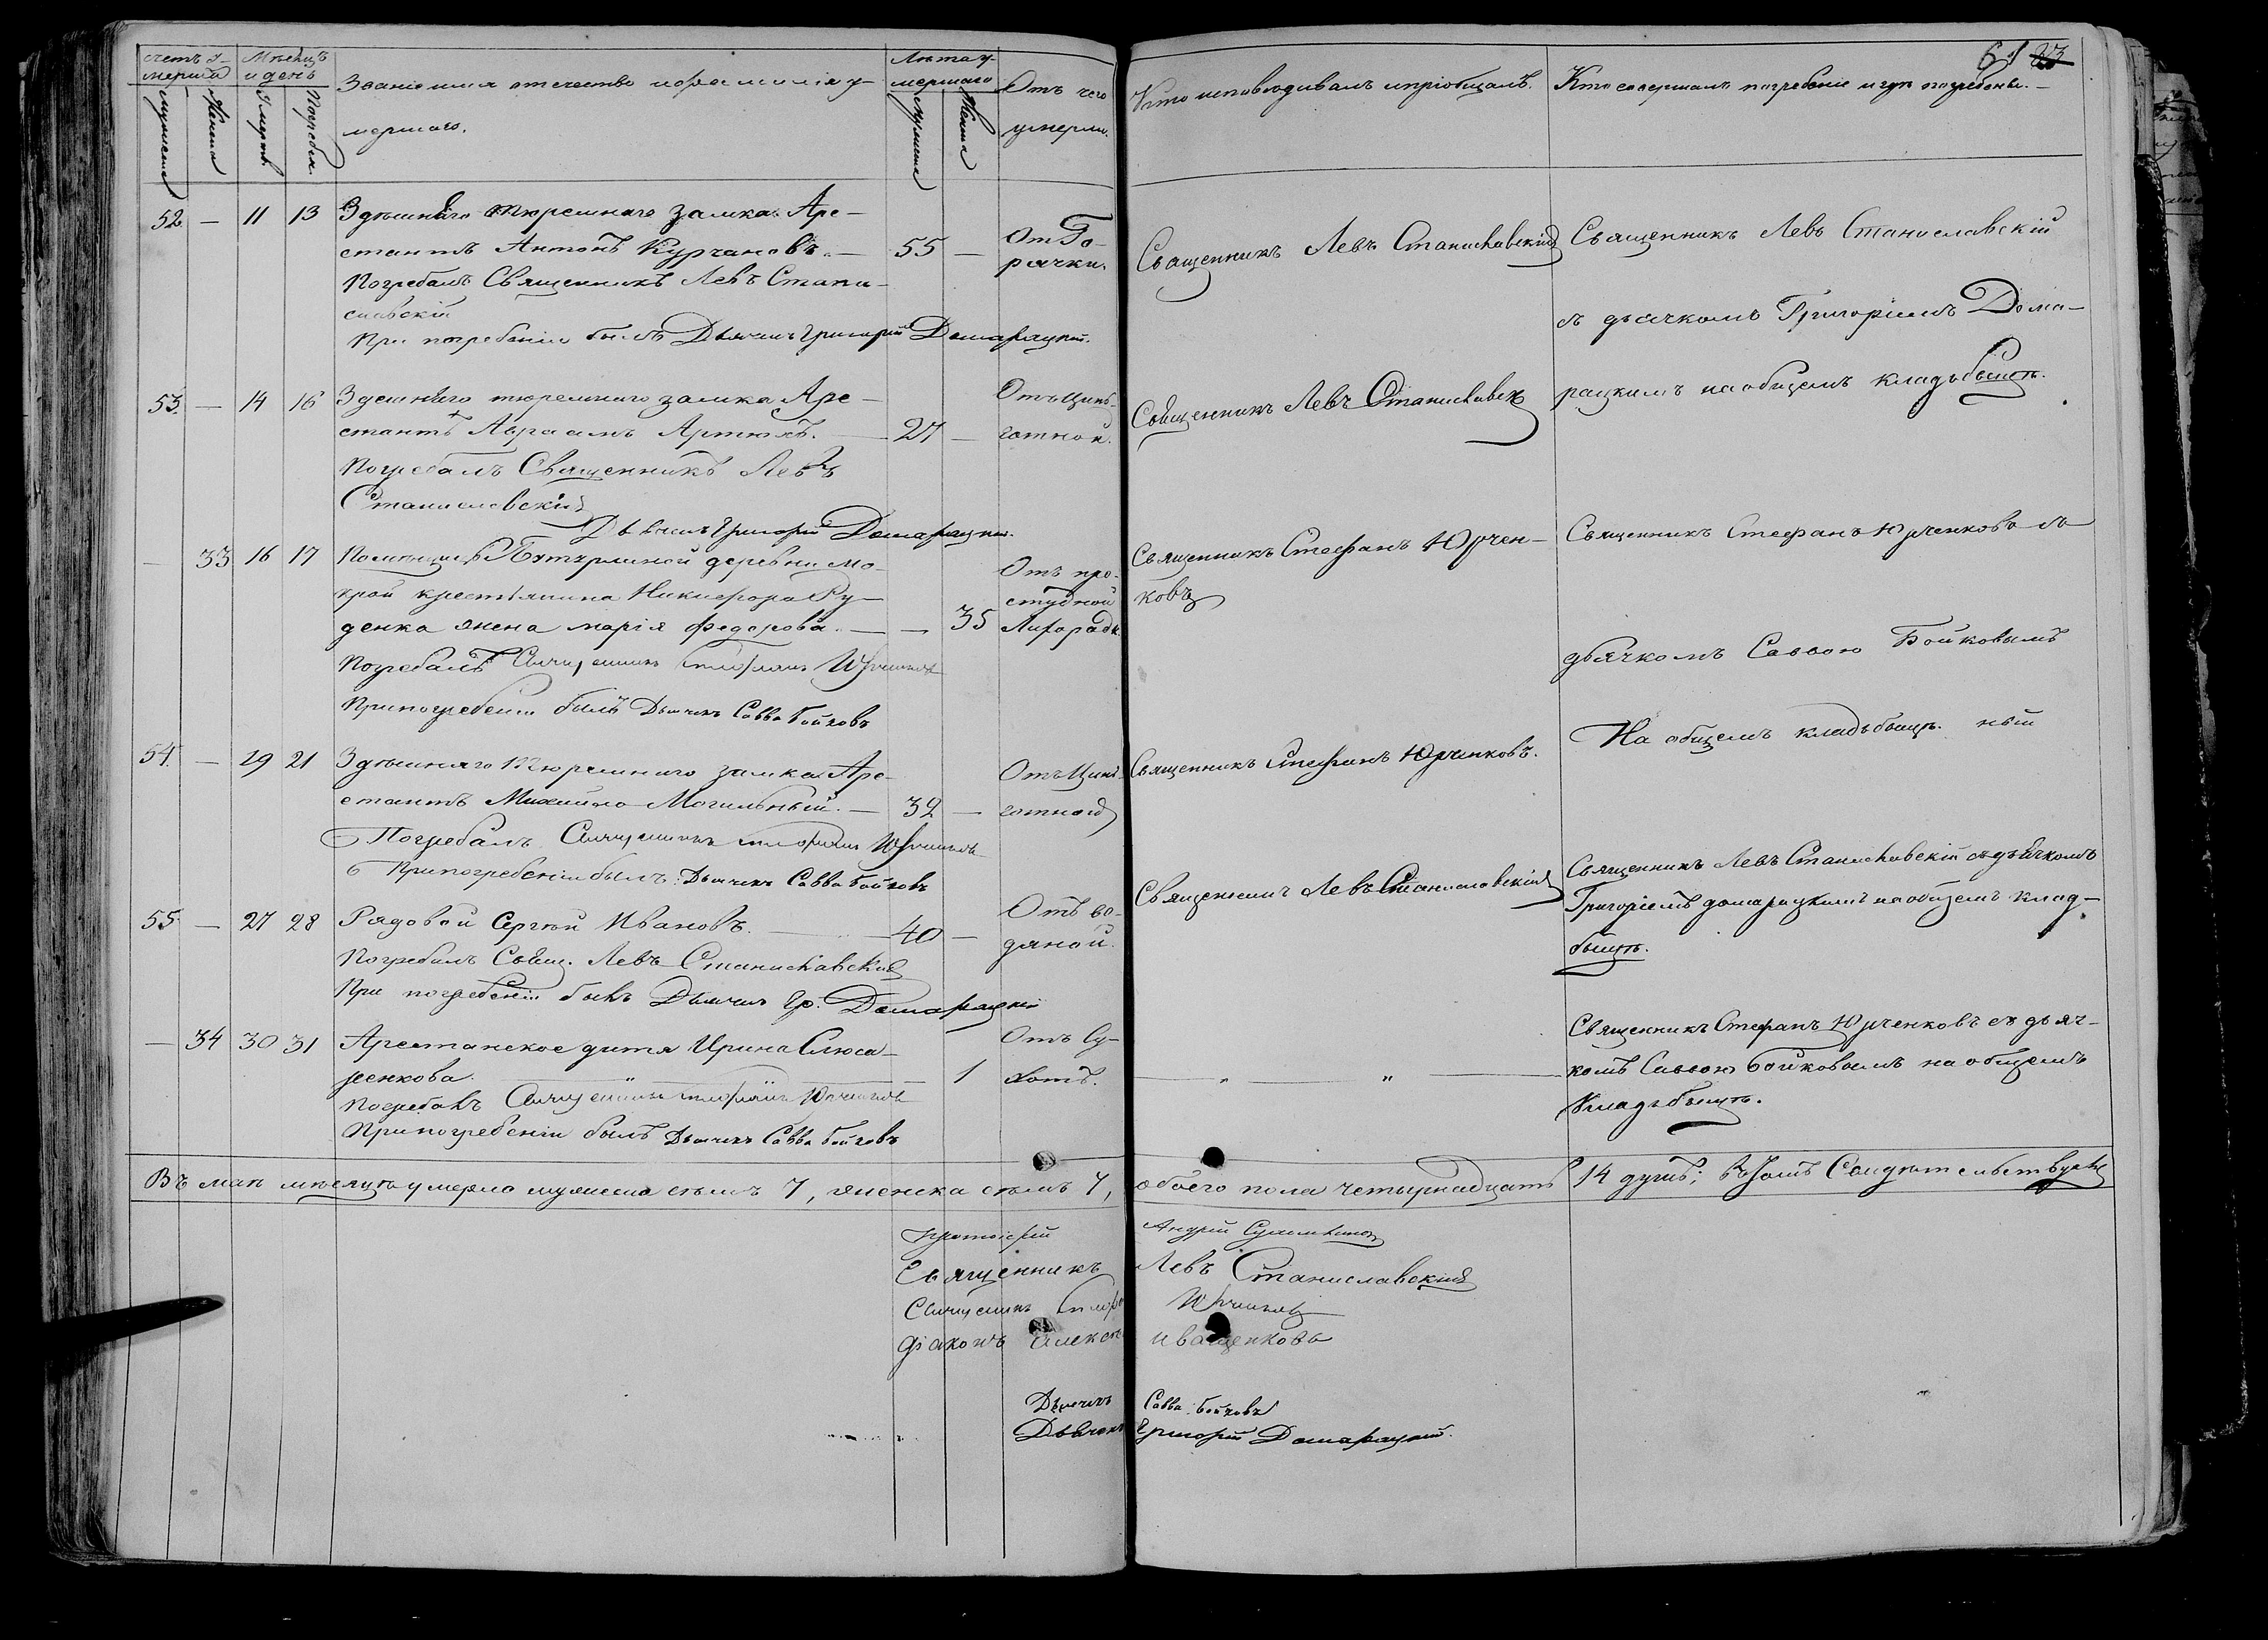 счетъ у-
мерши
мужеска
женска
Мѣсяцъ
и день
Смерть
Погребен.
Званіе имя отечество и фамилія у-
мершаго.
Лѣта у-
мершаго
мужеска
женска
Отъ чего
умерли.
Кто исповѣдывалъ и пріобщалъ.
Кто совершалъ погребеніе и гдѣ погребены.
61 23
52 — 11 13 Здѣшняго тюремнаго замка Аре-
стантъ Антонъ Курчановъ. — 55 —
От Го-
рячки.
Погребалъ Священникъ Левъ Стани-
славскій
При погребеніи былъ Дьячекъ Григорій Домарацкій.
Священникъ Левъ Станиславскій
Священникъ Левъ Станиславскій
съ дьячкомъ Григоріемъ Дома-
рацкимъ на общемъ кладьбыщѣ.
53. — 14 16 Здешняго тюремнаго замка Аре-
стантъ Авраамъ Артюхъ. — 27 —
Отъ Цынъ-
готной.
Погребалъ Священникъ Левъ
Станиславскій
Дьячекъ Григорій Домарацкій.
Священникъ Левъ Станиславск
— 33 16 17 Помѣщицы деревни Мо-
крой крестьянина Никифора Ру-
денка жена Марія Федорова. — — 35
Отъ про-
студной
Лихорадк.
Погребалъ Священникъ Стефанъ Юрченковъ
При погребеніи былъ Дьячекъ Савва Бойковъ
Священникъ Стефанъ Юрчен-
ковъ
Священникъ Стефанъ Юрченковъ съ
дьячкомъ Саввою Бойковымъ
На общемъ кладьбыщѣ.
54. — 19 21 Здѣшняго Тюремнаго замка Аре-
стантъ Михайло Могильный. — 32 —
Отъ Цынъ-
готной
Погребалъ Священникъ Стефанъ Юрченковъ
При погребеніи былъ Дьячекъ Савва Бойковъ
Священникъ Стефанъ Юрченковъ.
55. — 27 28 Рядовой Сергѣй Ивановъ. — 40 —
Отъ во-
дяной.
Погребалъ Свящ. Левъ Станиславскій
При погребеніи былъ Дьячекъ Гр. Домарацкій
Священникъ Левъ Станиславскій
Священникъ Левъ Станиславскій съ дьячкомъ
Григоріемъ домарацкимъ на общемъ клад-
быщѣ.
— 34 30 31 Арестанское дитя Ирина Слюса-
ренкова. — " — 1
Отъ Су-
хотъ.
Погребалъ Священникъ Стефанъ Юрченковъ
При погребеніи былъ Дьячекъ Савва Бойковъ
— " — " —
Священникъ Стефанъ Юрченковъ съ дьяч-
комъ Саввою Бойковымъ на общемъ
Кладьбыщѣ.
Въ маѣ мѣсяцѣ умерло мужеска семъ 7, женска семъ 7, обоего пола четырнадцать 14 душъ; въ томъ Свидѣтельствуетъ
Протоіерей Андрей
Священникъ Левъ Станиславскій
Священникъ Стефанъ Юрченковъ
Діаконъ Алексѣй Иващенковъ
Дьячекъ Савва Бойковъ
Дьячекъ Григорій Домарацкій.